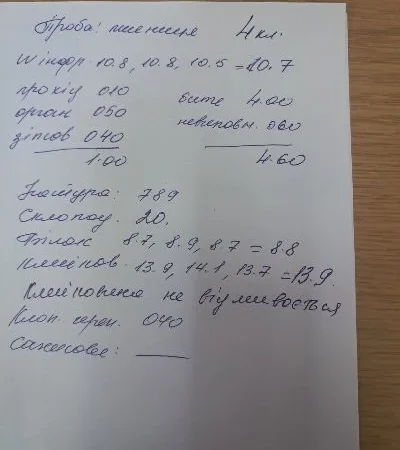 Проба: пшениця 4 кл.
W інфр. 10.8, 10.8, 10.5 = 10.7
прохід 010
орган 050
зіпсов 040
1.00
бите 4.00
невиповн. 060
4.60
Натура: 789
Склопод. 20.
Білок 8.7, 8.9, 8.7 = 8.8
клейков. 13.9, 14.1, 13.7 = 13.9.
Клейковина не відмивається
Клоп. череп. 040
Сажкове: —